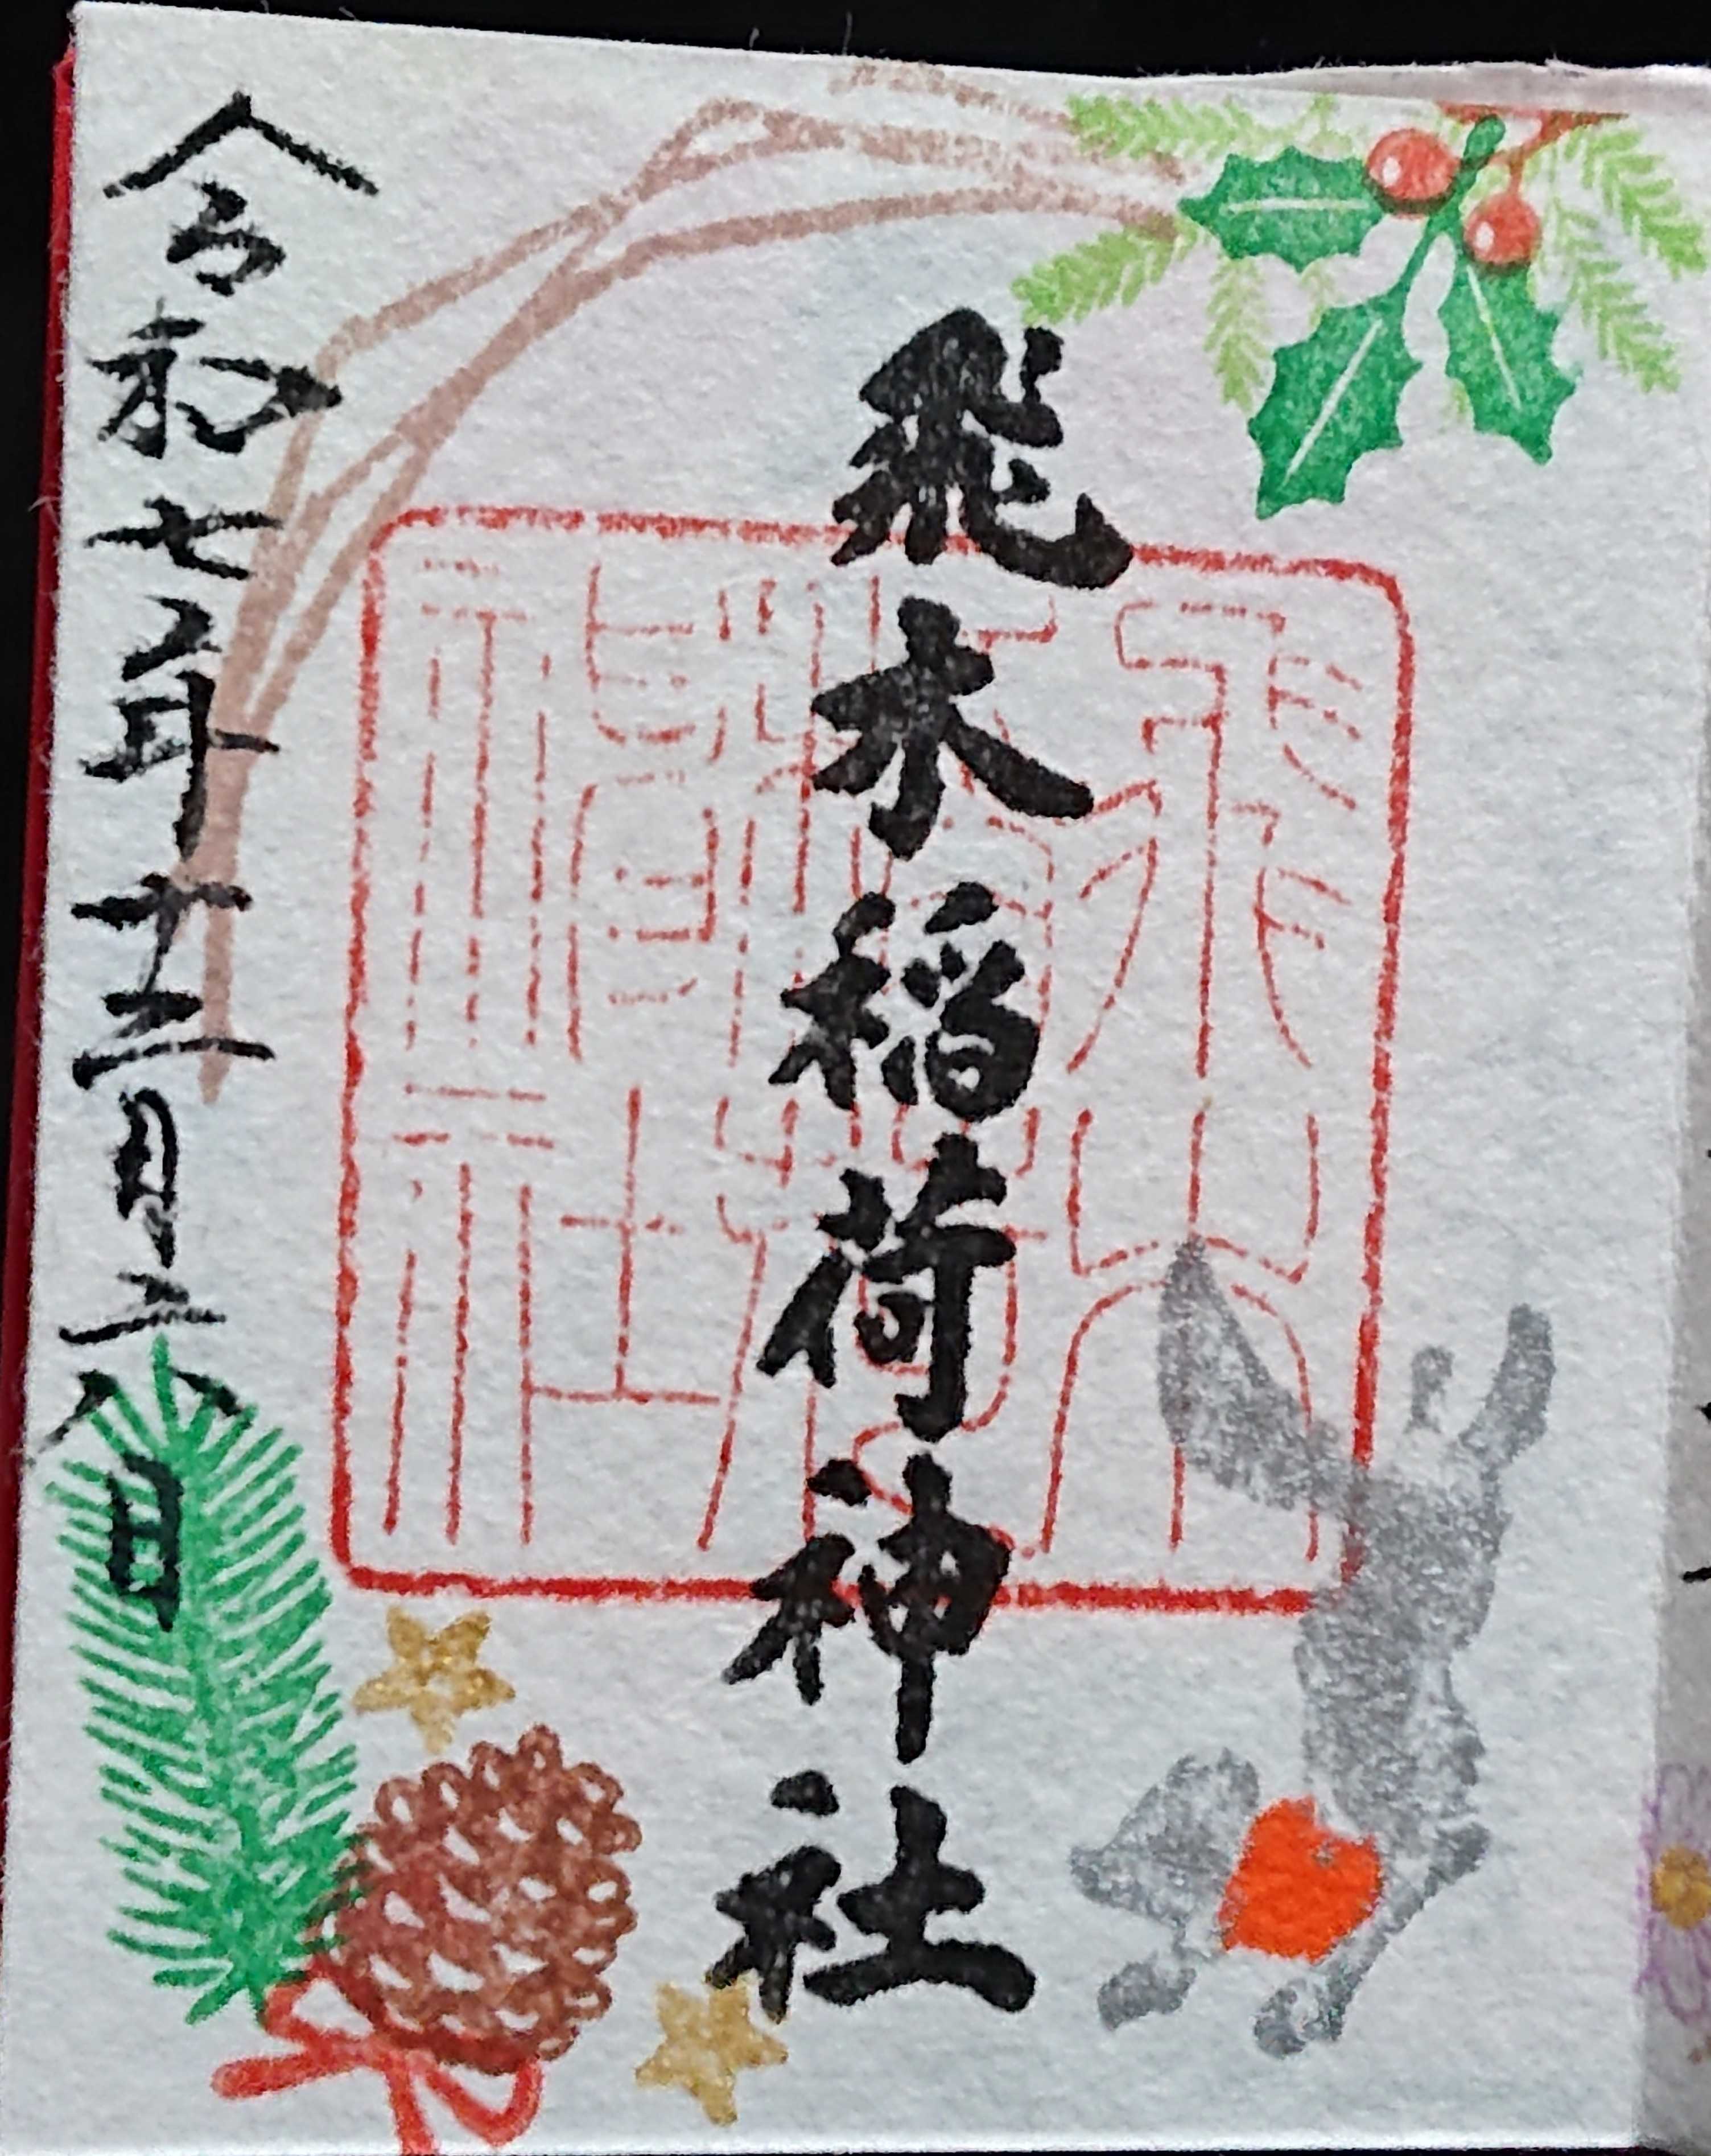 飛木稲荷神社
飛木
稲荷
神社
令和七年十二月六日